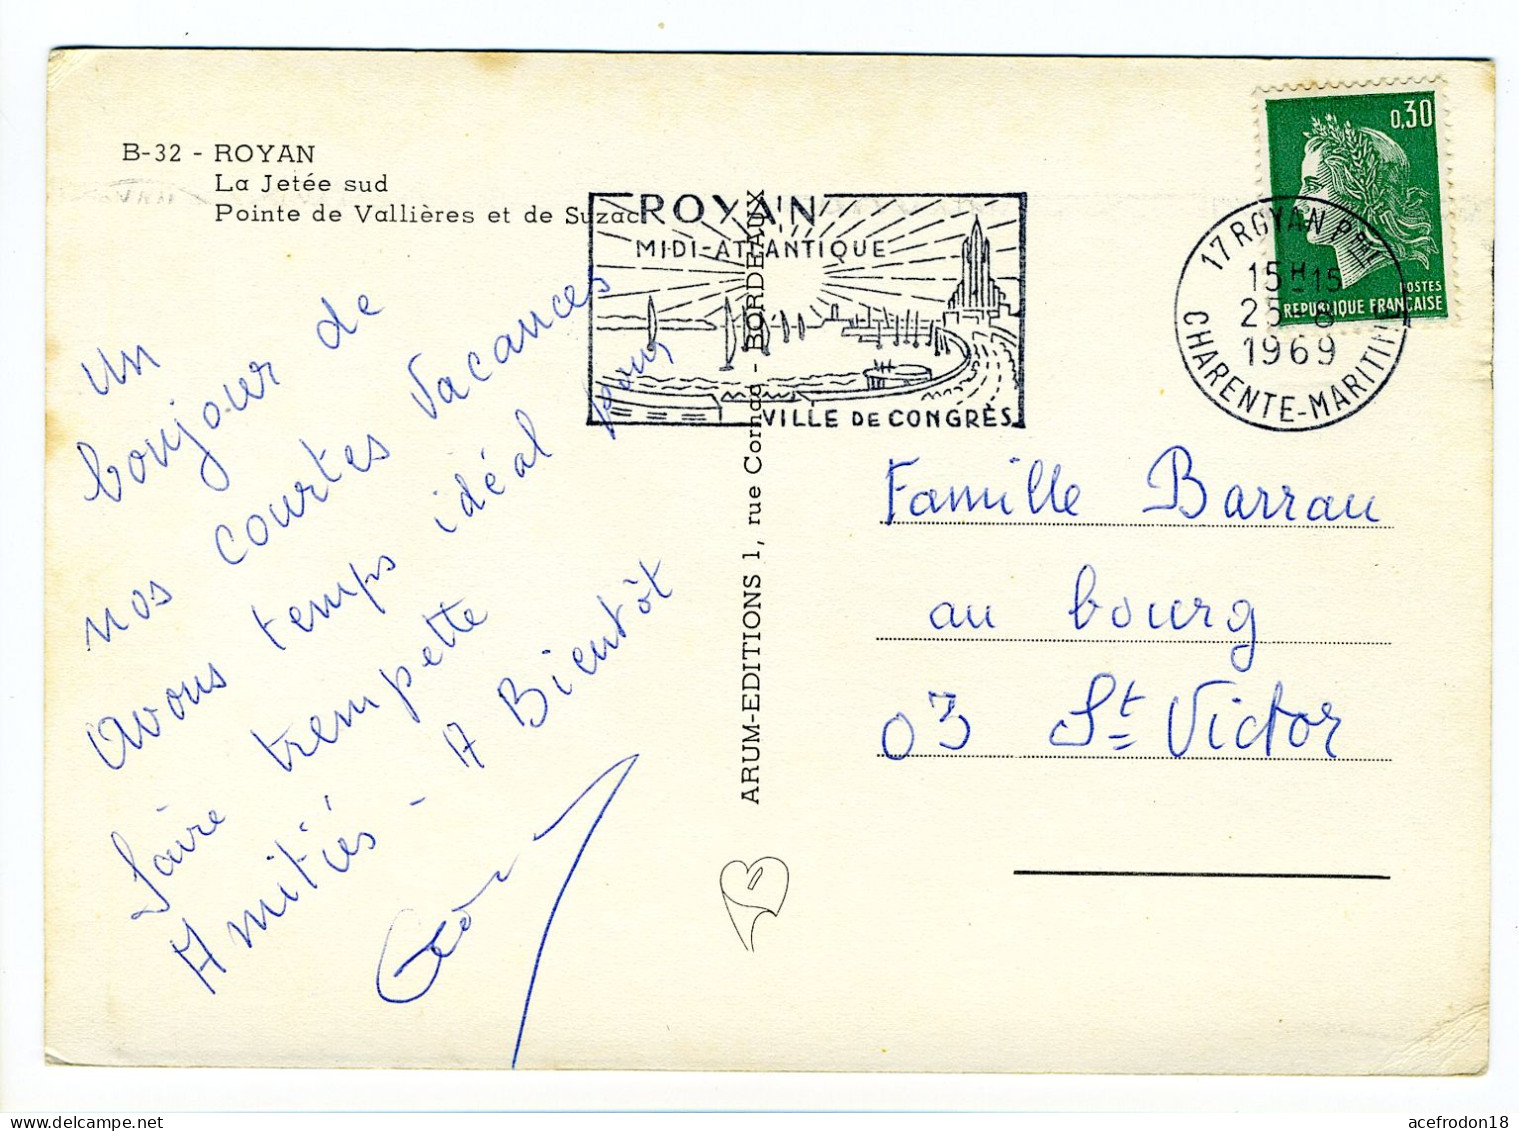 B-32 - ROYAN
La Jetée sud
Pointe de Vallières et de Suzac
ROYAN
MIDI-ATLANTIQUE
VILLE DE CONGRÈS
17 ROYAN PPAL
15H15
25-8
1969
CHARENTE-MARITIME
0,30
POSTES
REPUBLIQUE FRANÇAISE
Un
bonjour de
nos courtes vacances
avons temps idéal pour
faire trempette
Amitiés - A Bientôt
ARUM-EDITIONS 1, rue Cornac - BORDEAUX
Famille Barrau
au bourg
03 St Victor
acefrodon18